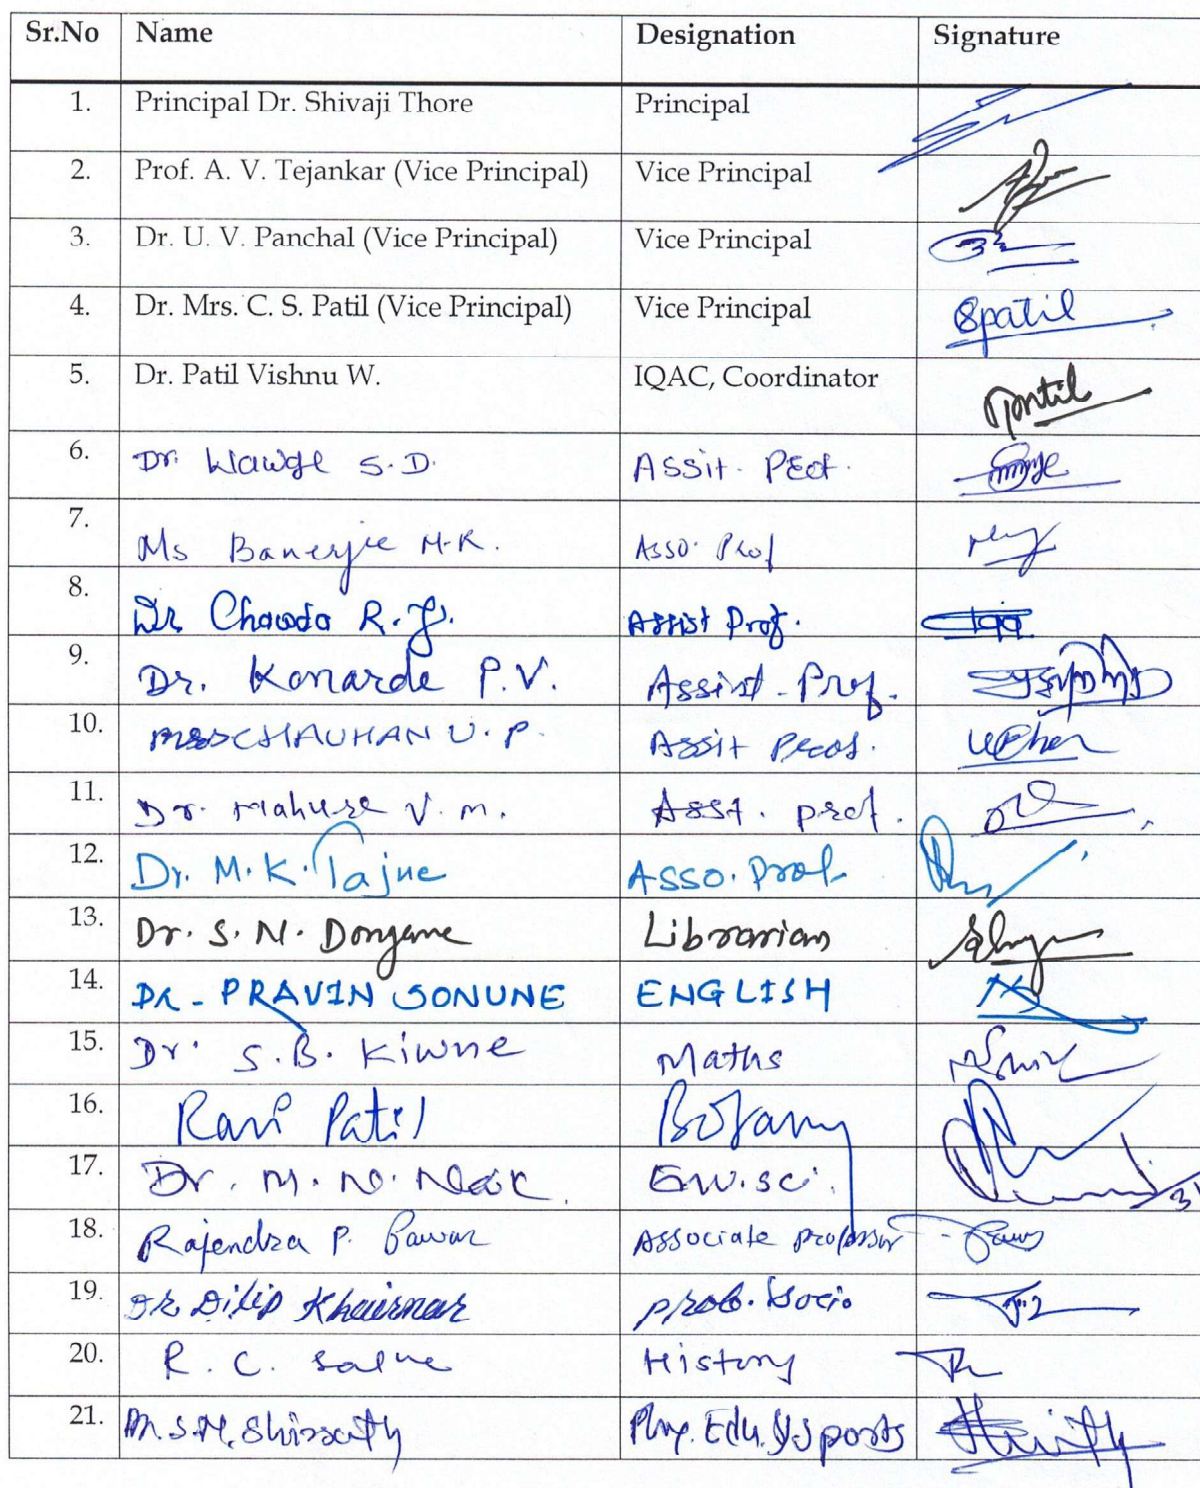 Sr.No Name Designation Signature
1. Principal Dr. Shivaji Thore Principal
2. Prof. A. V. Tejankar (Vice Principal) Vice Principal
3. Dr. U. V. Panchal (Vice Principal) Vice Principal
4. Dr. Mrs. C. S. Patil (Vice Principal) Vice Principal Spatil
5. Dr. Patil Vishnu W. IQAC, Coordinator
6. Dr. S.D. Assit. Prof.
7. Ms Banerjie M.K. Asso. Prof
8. Dr Chawda R.J. Assist Prof.
9. Dr. Konarde P.V. Assist. Prof.
10. CHAUHAN U.P. Assit
11. Dr. Mahure V.M. Asst. prof.
12. Dr. M.K. Tajne Asso. Prof.
13. Dr. S. N. Dongane Librarian
14. DR. PRAVIN SONUNE ENGLISH
15. Dr. S.B. Kiwne Maths
16. Ravi Patil Botany
17. Dr. M. N. Naik Env.sci.
18. Rajendra P. Pawar Associate professor
19. Dr Dilip Khairnar prof. Socio
20. R. C. Salve History
21. S.M. Shirsath Phy. Edu. & Sports